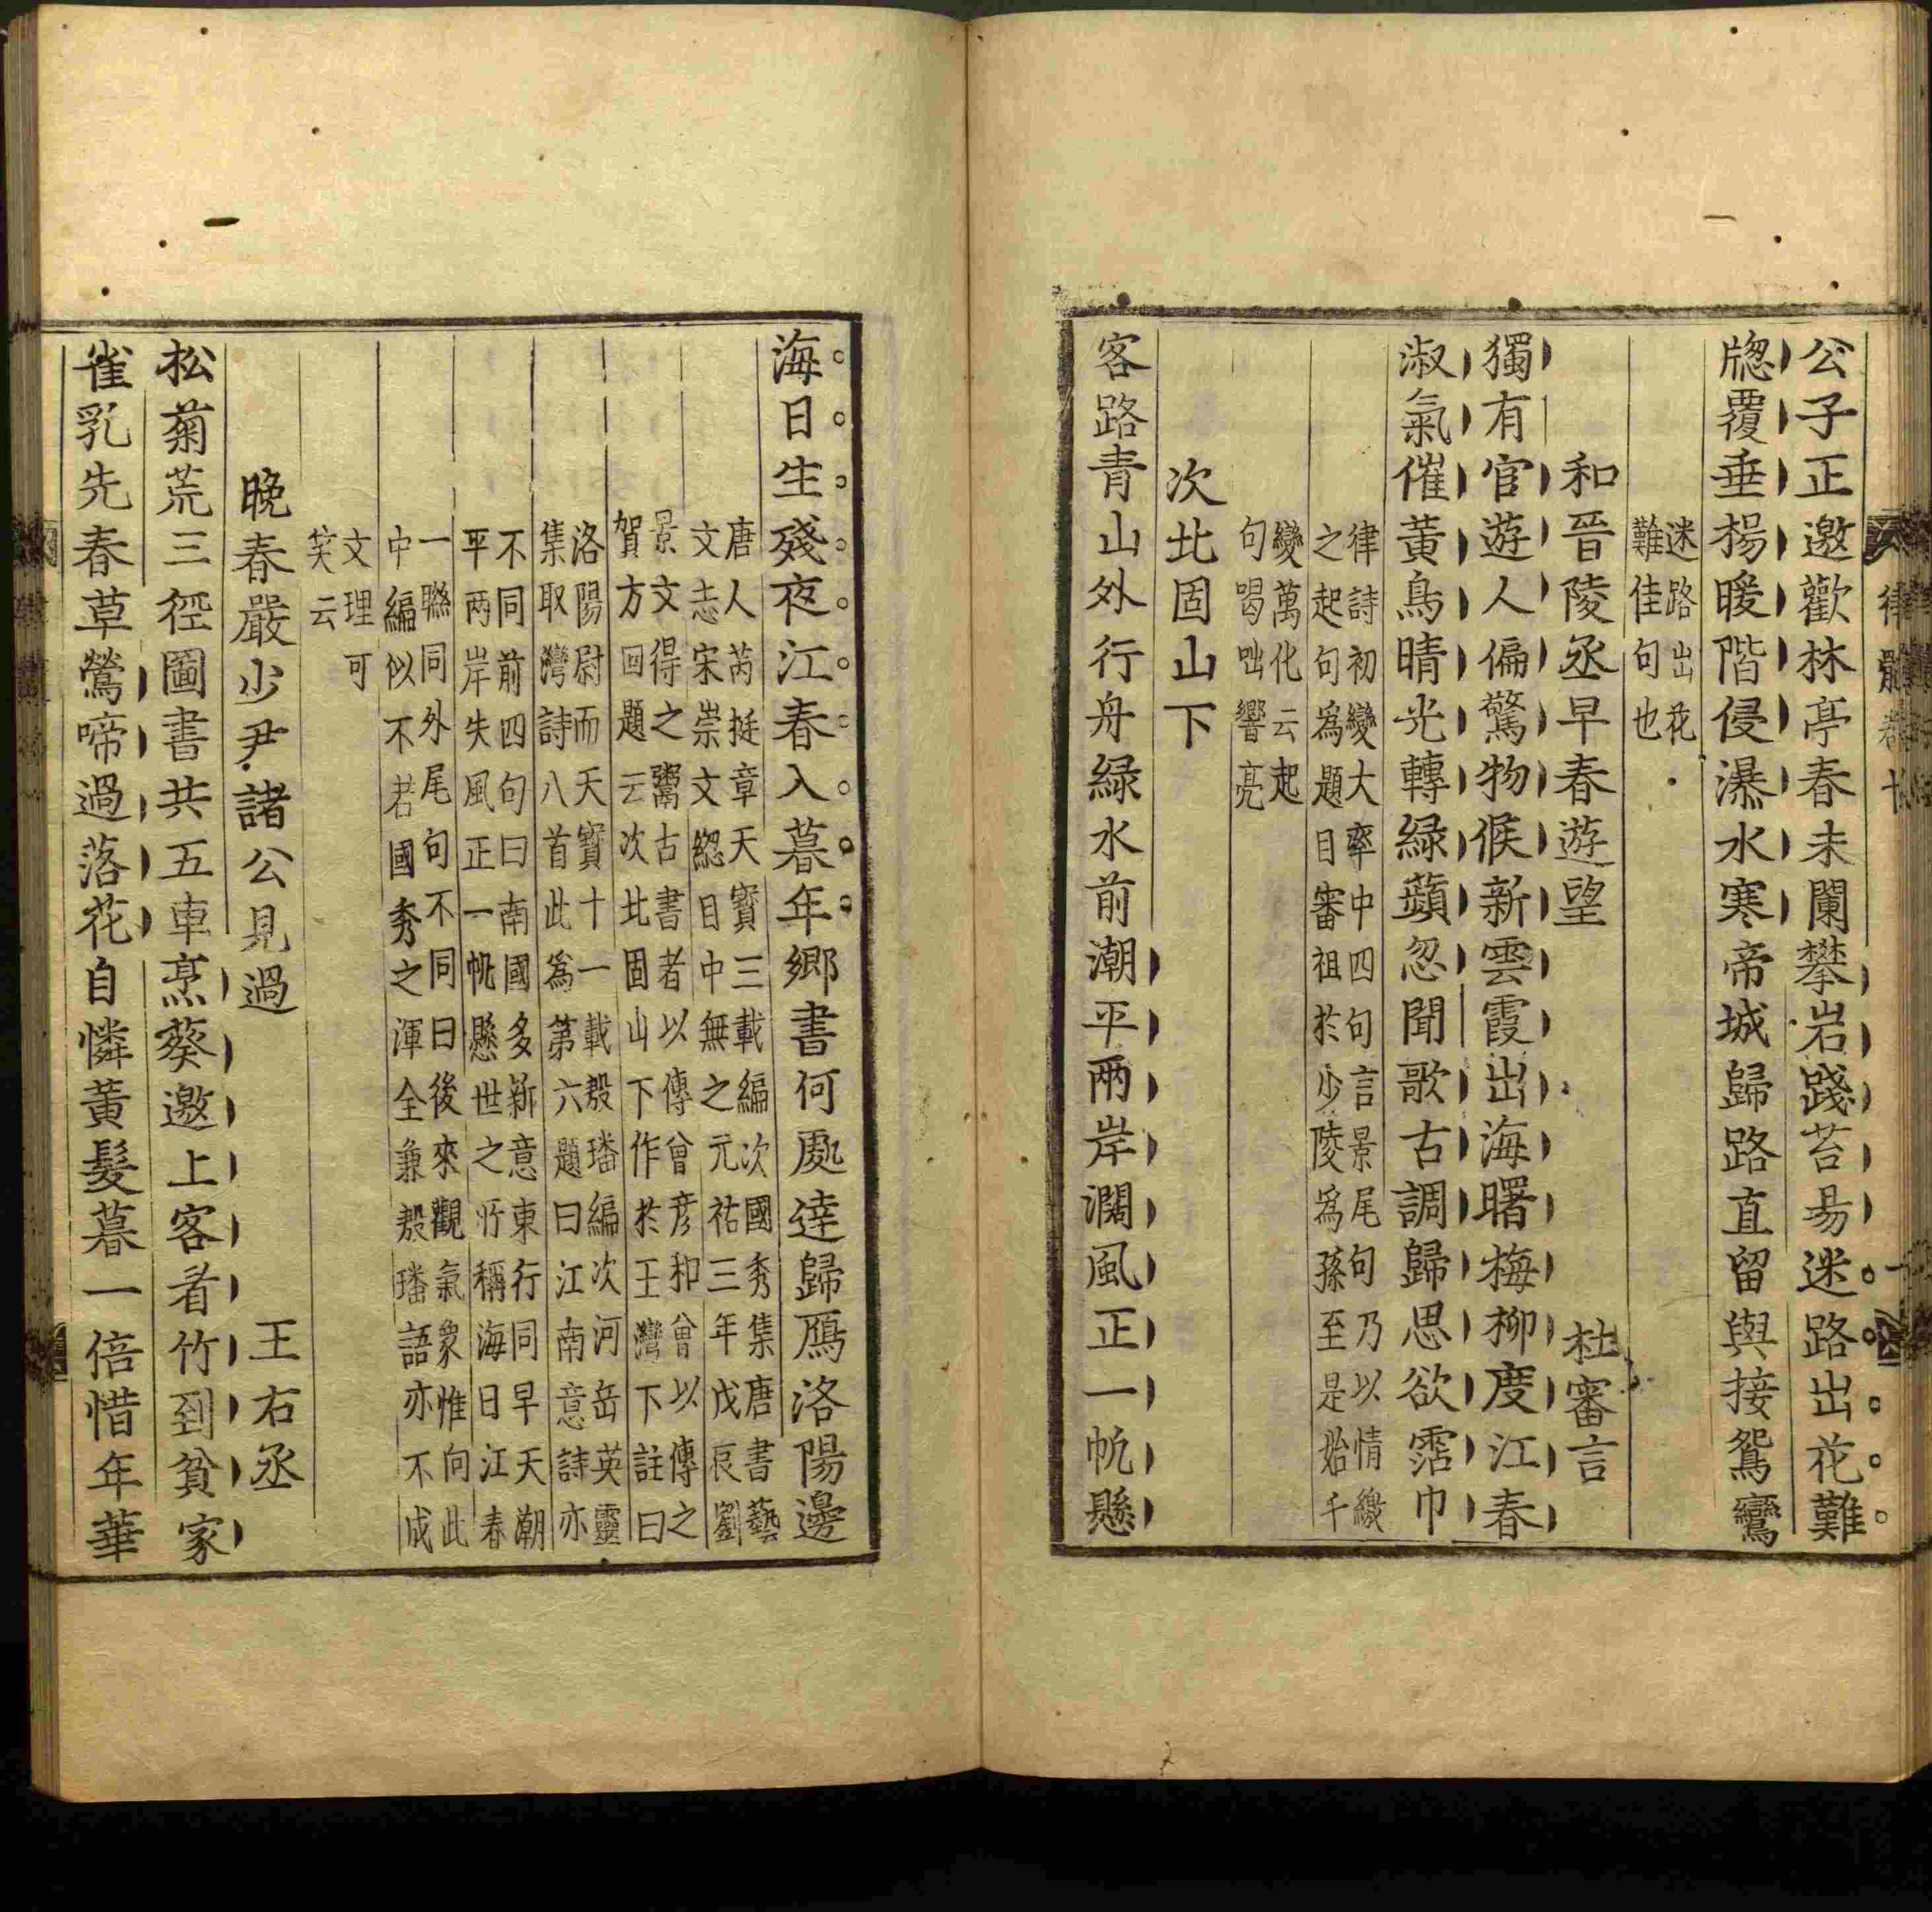 公子正邀歡林亭春未闌攀岩踐苔易迷路出花難
牎覆垂楊暖階侵瀑水寒帝城歸路直留與接鴛鸞
迷路出花
難佳句也
和晉陵丞早春遊望 杜審言
獨有官遊人偏驚物候新雲霞出海曙梅柳度江春
淑氣催黃鳥晴光轉綠蘋忽聞歌古調歸思欲霑巾
律詩初變大率中四句言景尾句乃以情繳
之起句爲題目審祖於少陵爲孫至是始千
變萬化云起
句喝咄響亮
次北固山下
客路青山外行舟綠水前潮平兩岸濶風正一帆懸
海日生殘夜江春入暮年鄉書何處達歸鴈洛陽邊
唐人芮挺章天寶三載編次國秀集唐書藝
文志宋崇文緫目中無之元祐三年戊辰劉
景文得之鬻古書者以傳曾彦和曾以傳之
賀方回題云次北固山下作於王灣下註曰
洛陽尉而天寶十一載殷璠編次河岳英靈
集取灣詩八首此爲第六題曰江南意詩亦
不同前四句曰南國多新意東行同早天潮
平兩岸失風正一帆懸世之所稱海日江春
一聯同外尾句不同曰後來觀氣象惟向此
中編似不若國秀之渾全兼殷璠語亦不成
文理可
笑云
晚春嚴少尹諸公見過 王右丞
松菊荒三徑圖書共五車烹葵邀上客看竹到貧家
雀乳先春草鶯啼過落花自憐黃髮暮一倍惜年華